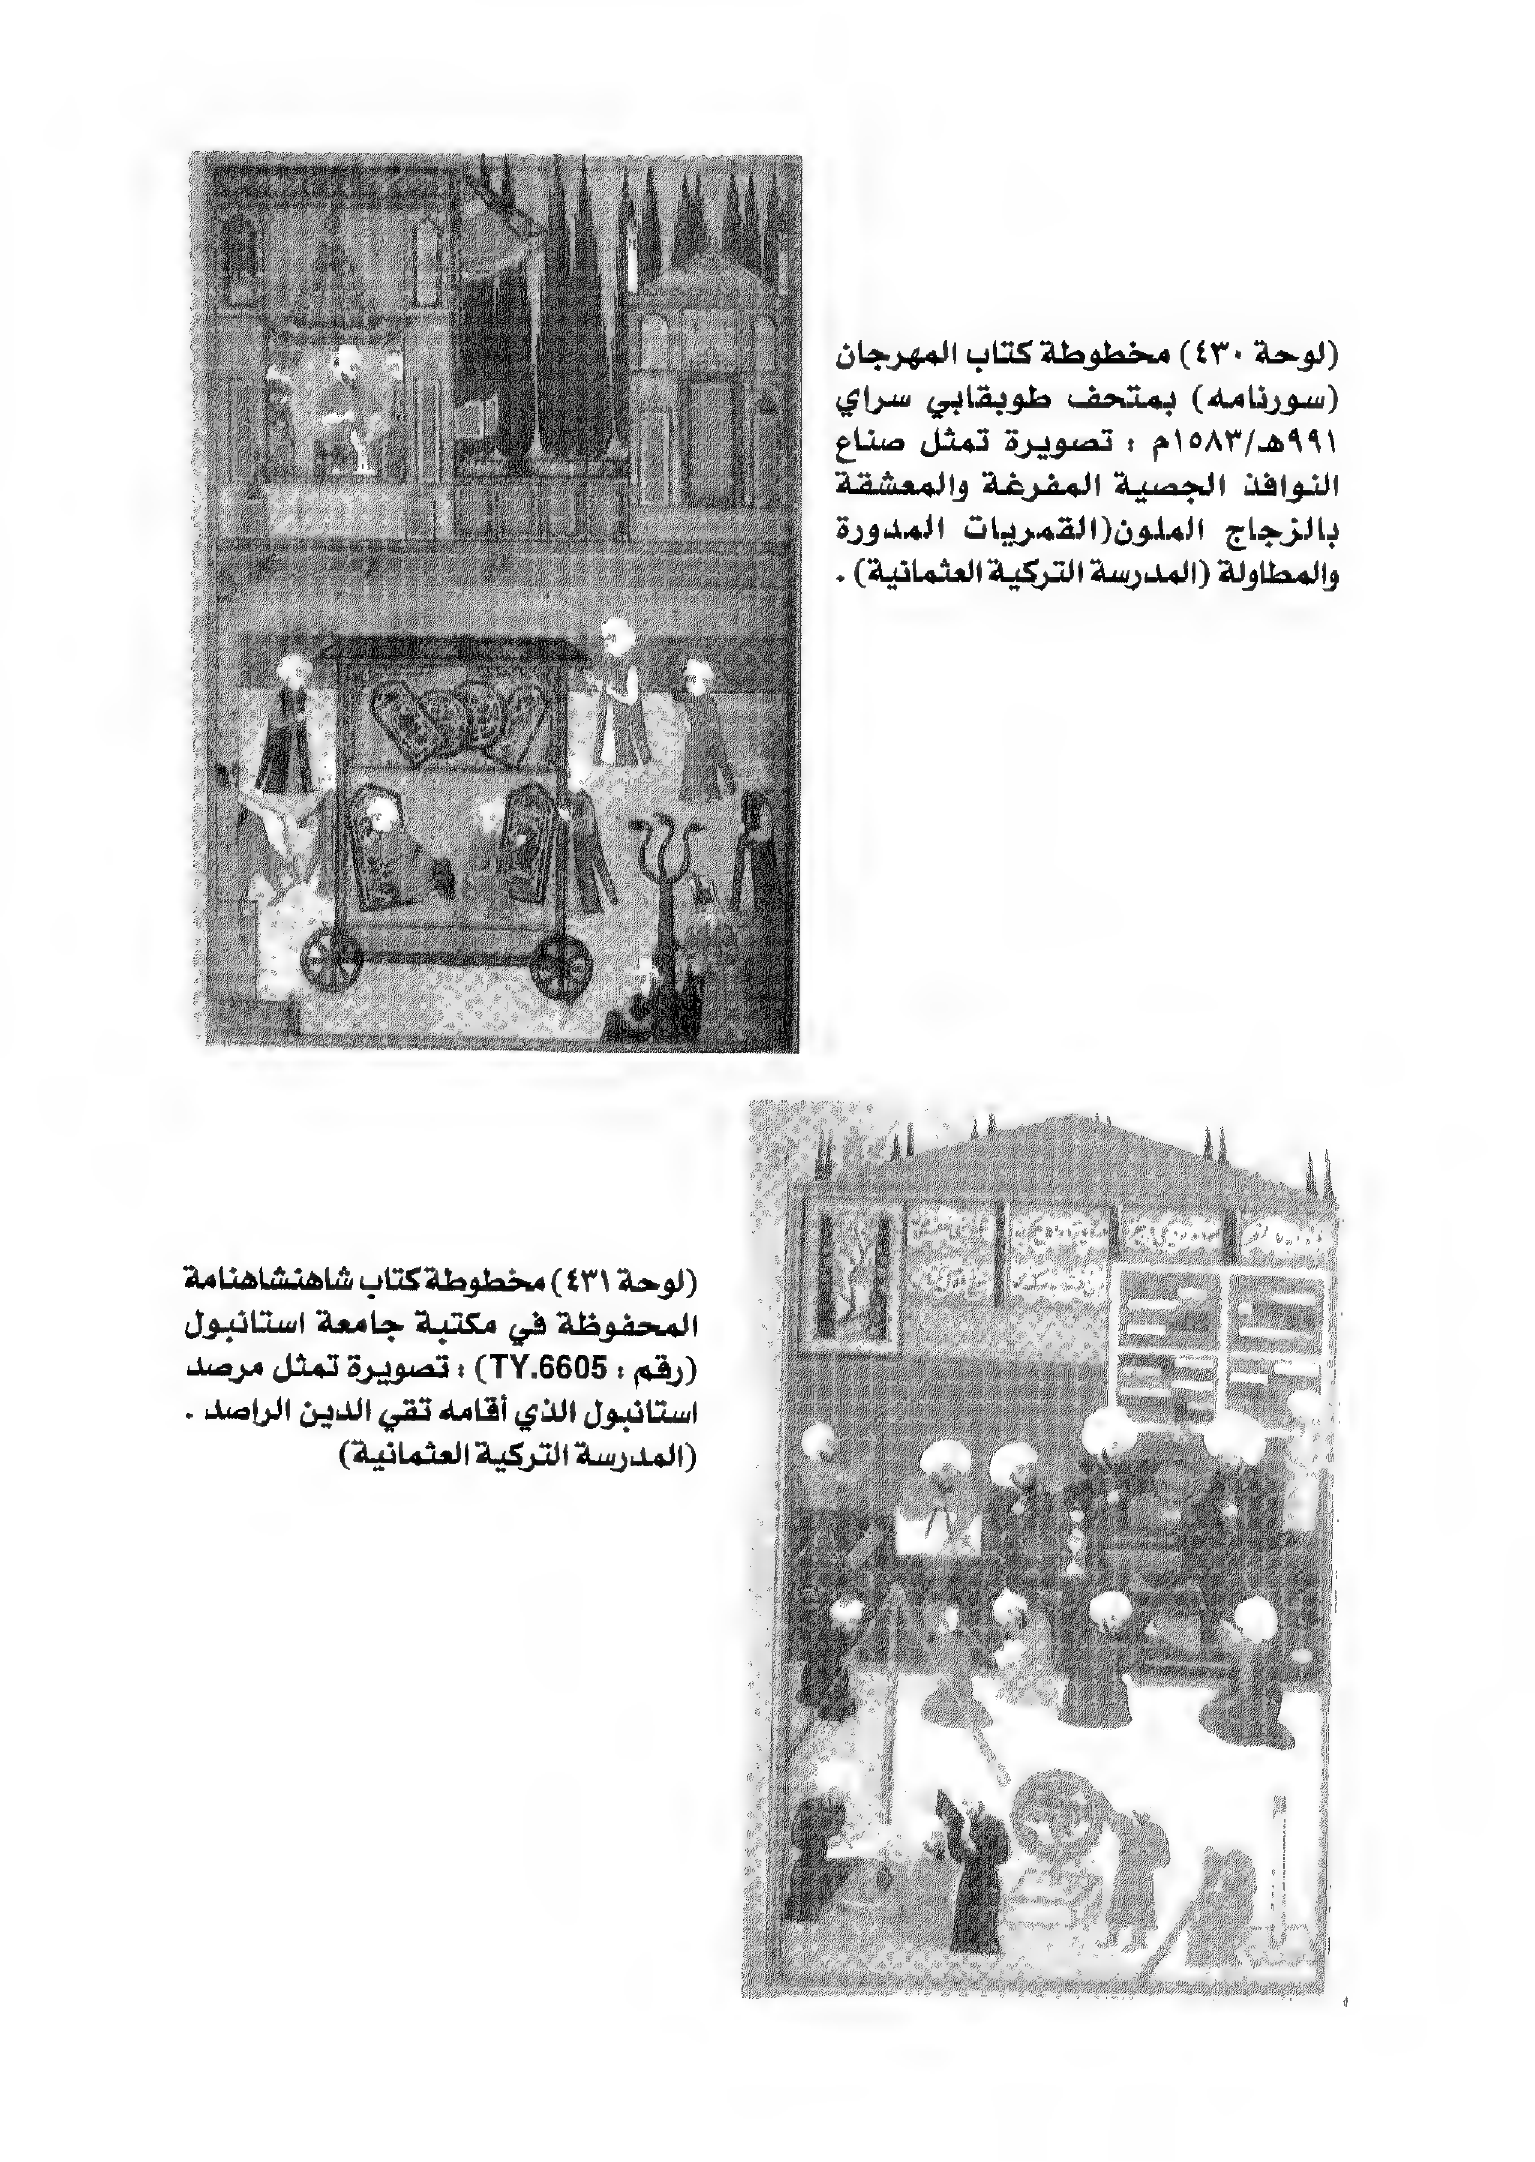 (لوحة ٤٣٠) مخطوطة كتاب المهرجان
(سورنامه) بمتحف طوبقابي سراي
٩٩١هـ/١٥٨٣م : تصويرة تمثل صناع
النوافذ الجصية المفرغة والمعشقة
بالزجاج الملون(القمريات المدورة
والمطاولة (المدرسة التركية العثمانية) .
(لوحة ٤٣١) مخطوطة كتاب شاهنشاهنامة
المحفوظة في مكتبة جامعة استانبول
(رقم : TY.6605) : تصويرة تمثل مرصد
استانبول الذي أقامه تقي الدين الراصد .
(المدرسة التركية العثمانية)